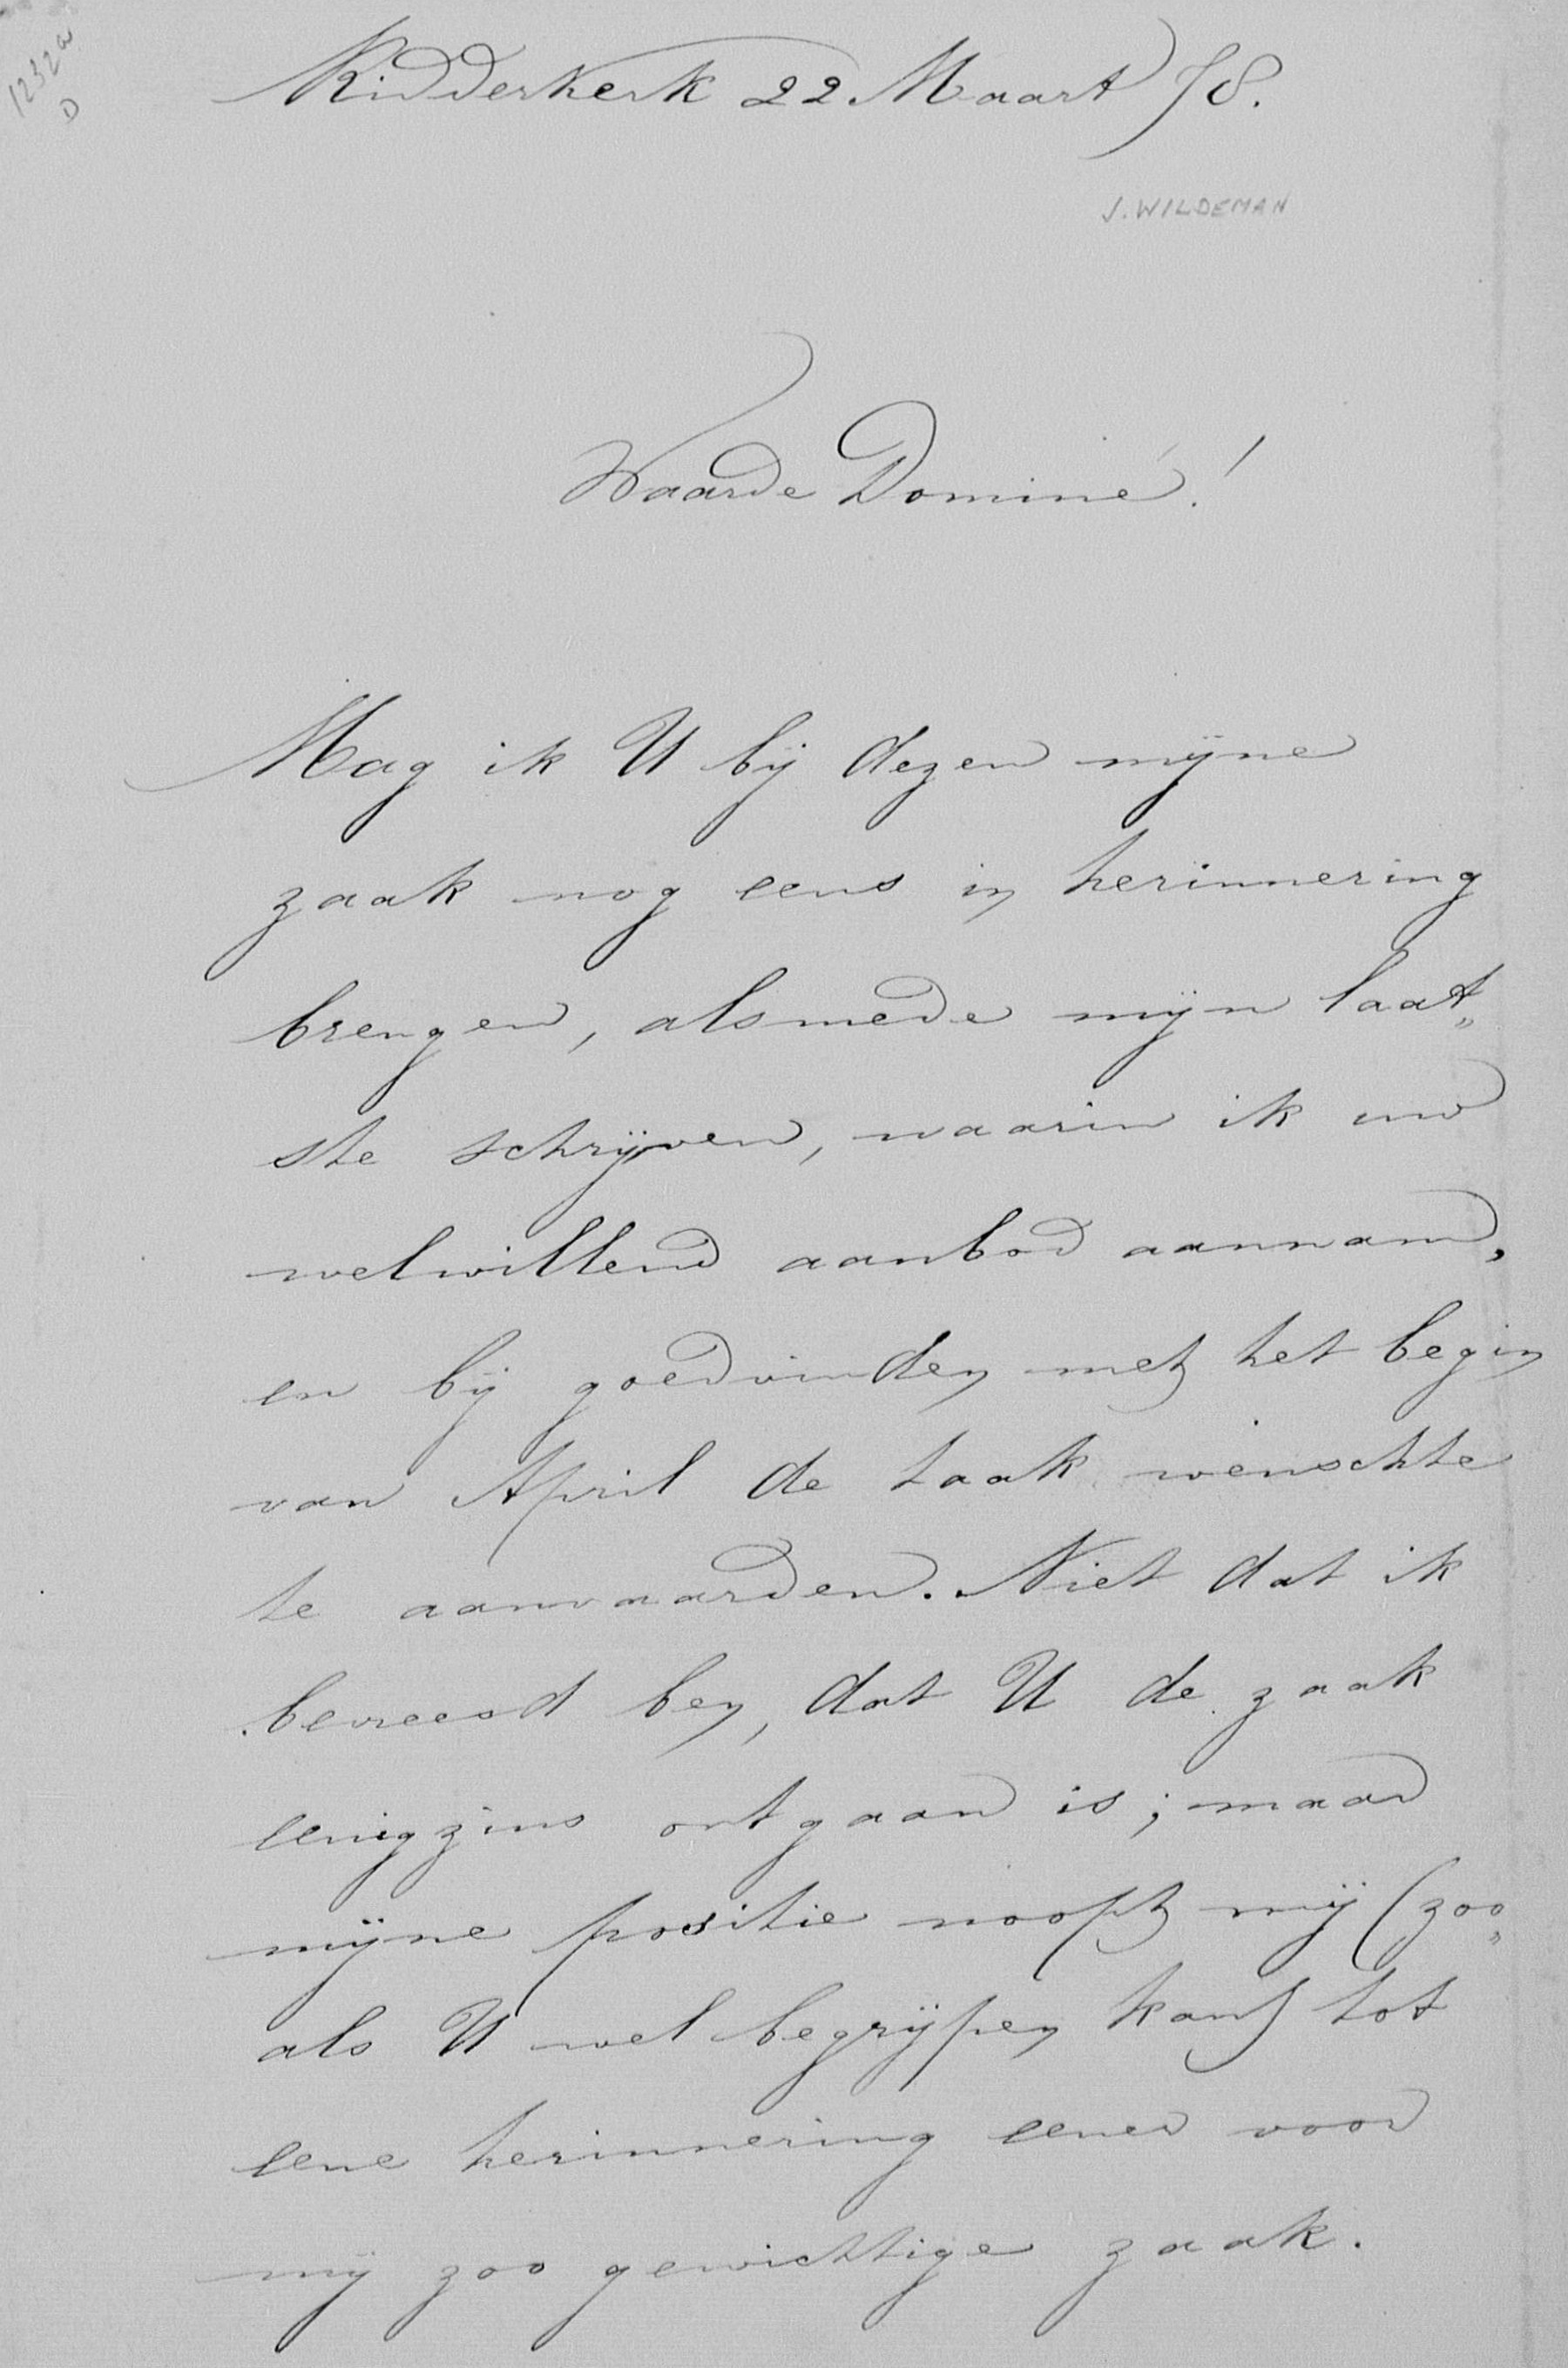 1232a
D
Ridderkerk 22 Maart 78.
J. WILDEMAN
Waarde Dominé!
Mag ik U bij dezen mijne
zaak nog eens in herinnering
brengen, alsmede mijn laat„
ste schrijven, waarin ik uw
welwillend aanbod aannam,
en bij goedvinden met het begin
van April de taak wenschte
te aanvaarden. Niet dat ik
bevreesd ben, dat U de zaak
eenigzins ontgaan is; maar
mijne positie noopt mij (zoo„
als U wel begrijpen kan) tot
eene herinnering eener voor
mij zoo gewichtige zaak.